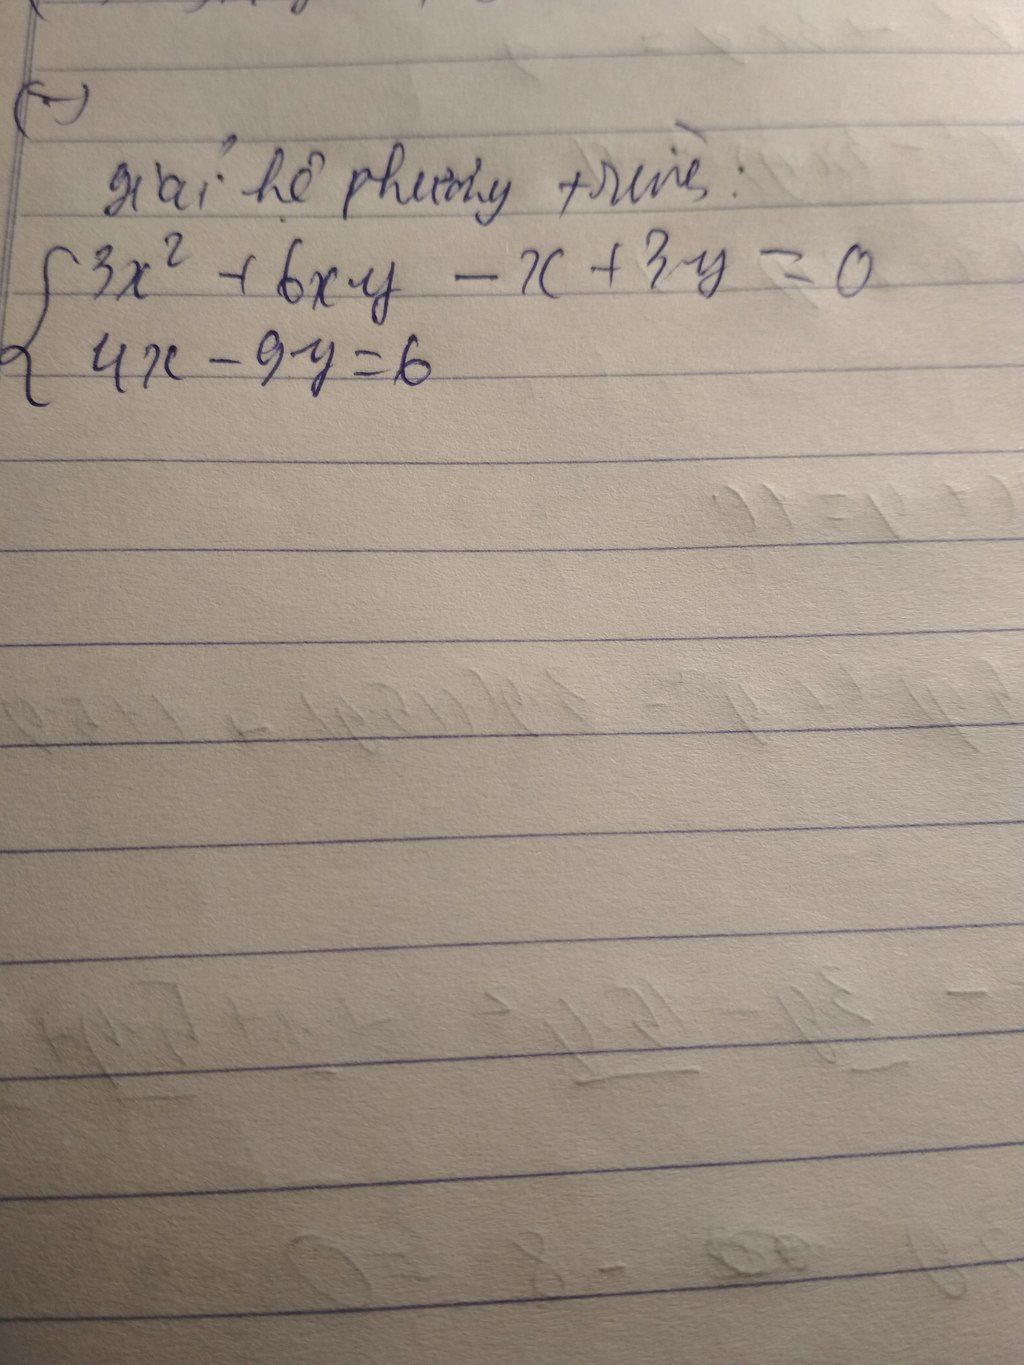 (-)
giải hệ phương trình:
3x² + 6xy - x + 3y = 0
4x - 9y = 6